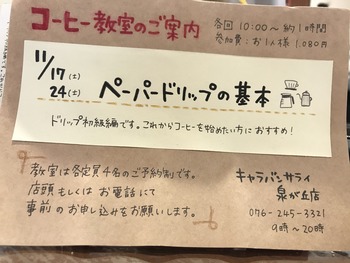 コーヒー教室のご案内
各回 10:00〜約1時間
参加費:お1人様 1,080円
11/17(土)
24(土)
ペーパードリップの基本
ドリップ初級編です。これからコーヒーを始めたい方におすすめ!
教室は各定員4名のご予約制です。
店頭もしくは お電話にて
事前のお申し込みをお願いします。
キャラバンサライ
泉が丘店
076-245-3321
9時〜20時